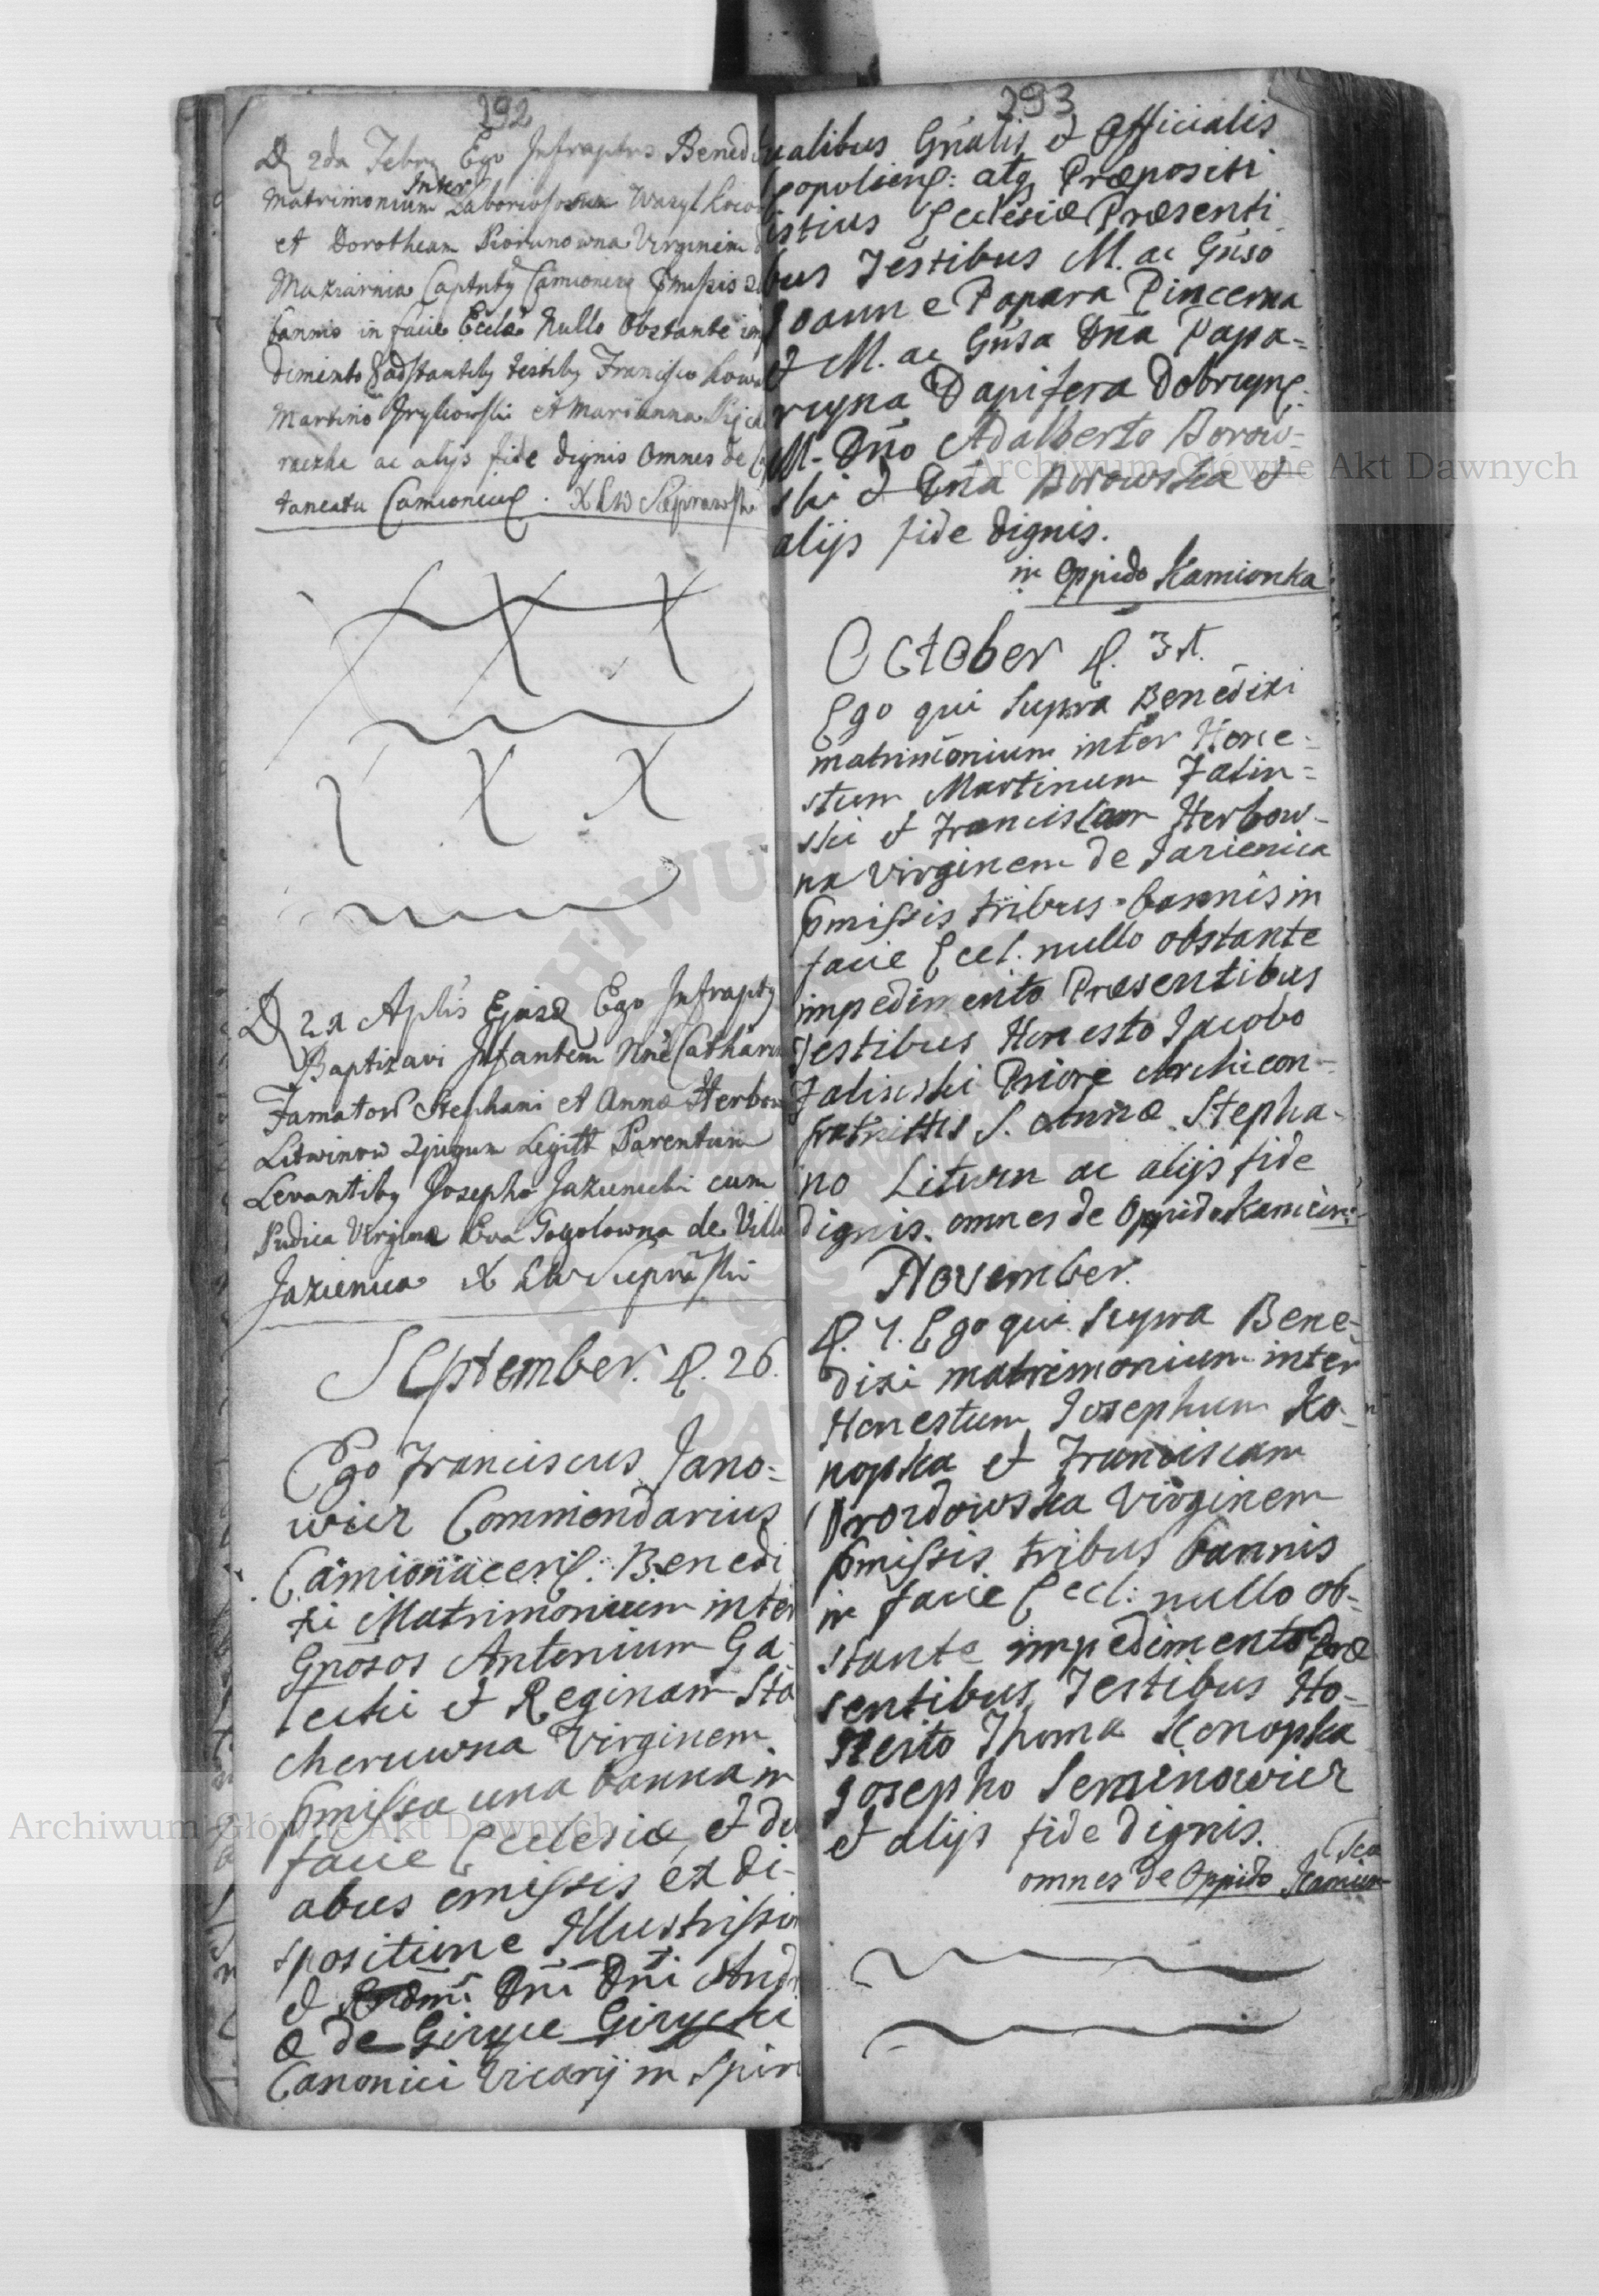 192
D 2da Febru Ego Infraptus Bened
Inter
Matrimonium Laboriosum Wasyl
et Dorotheam Piorunowna Virginem
Maziarnia Captnby Camionien pmissis
bannis in facie Eccla Nullo Obstante im
dimento adstantiby testiby Francisco Kowa
Martino et Marianna
ac alijs fide dignis Omnes de
taneatu Camioniens. X LW
D 2a Aplis Ejusd Ego Infrapty
Baptizavi Infantem Nne Catharin
Famator Stephani et Anna Herbow
Litwinow Legitt Parentum
Levantiby Josepho Jazienicki cum
Pudica Virgine Eva Gogolowna de Villa
Jazienica X LW
September. D. 26.
Ego Franciscus Jano=
wicz Commendarius
Camionacens: Benedi
xi Matrimonium inter
Gnosos Antonium Ga
lecki et Reginam Sta
cheruwna Virginem
pmissa una banna in
facie Ecclesiæ, et du
abus omissis ex di-
spositione Illustrissi
et Rndmi Dni Dni And
æ de Giryce Girycki
Canonici Vicarij in Spiri
293
ualibus Gnalis et Officialis
popoliens: atq Præpositi
istius Ecclesiæ Præsenti
bus Testibus M. ac Gnso
Joanne Papara Pincerna
et M. ac Gnsa Dna Papa=
rcyna Dapifera Dobrcyns:
M. Dno Adalberto Borow=
ski et Dna Borowska et
alijs fide dignis.
in Oppido Kamionka
October D. 3 t.
Ego qui supra Benedixi
matrimonium inter Hone=
stum Martinum Zalin=
ski et Franciscam Herbow-
na Virginem de Jazienica
pmissis tribus bannis in
facie Eccl. nullo obstante
impedimento Præsentibus
Testibus Honesto Jacobo
Zalinski Priore Archicon-
fratrittis S. Annæ Stepha-
no Liturn ac alijs fide
dignis. omnes de Oppido Kamion:
November.
D. 7. Ego qui supra Bene=
dixi matrimonium inter
Honestum Josephum Ko-
nopka et Franciscam
Drozdowska Virginem
pmissis tribus bannis
in facie Eccl: nullo ob=
stante impedimento Præ
sentibus Testibus Ho-
nesto Thoma Konopka
Josepho Seminowicz
et alijs fide dignis.
omnes de Oppido Kamion
ska
Archiwum Główne Akt Dawnych
Archiwum Główne Akt Dawnych